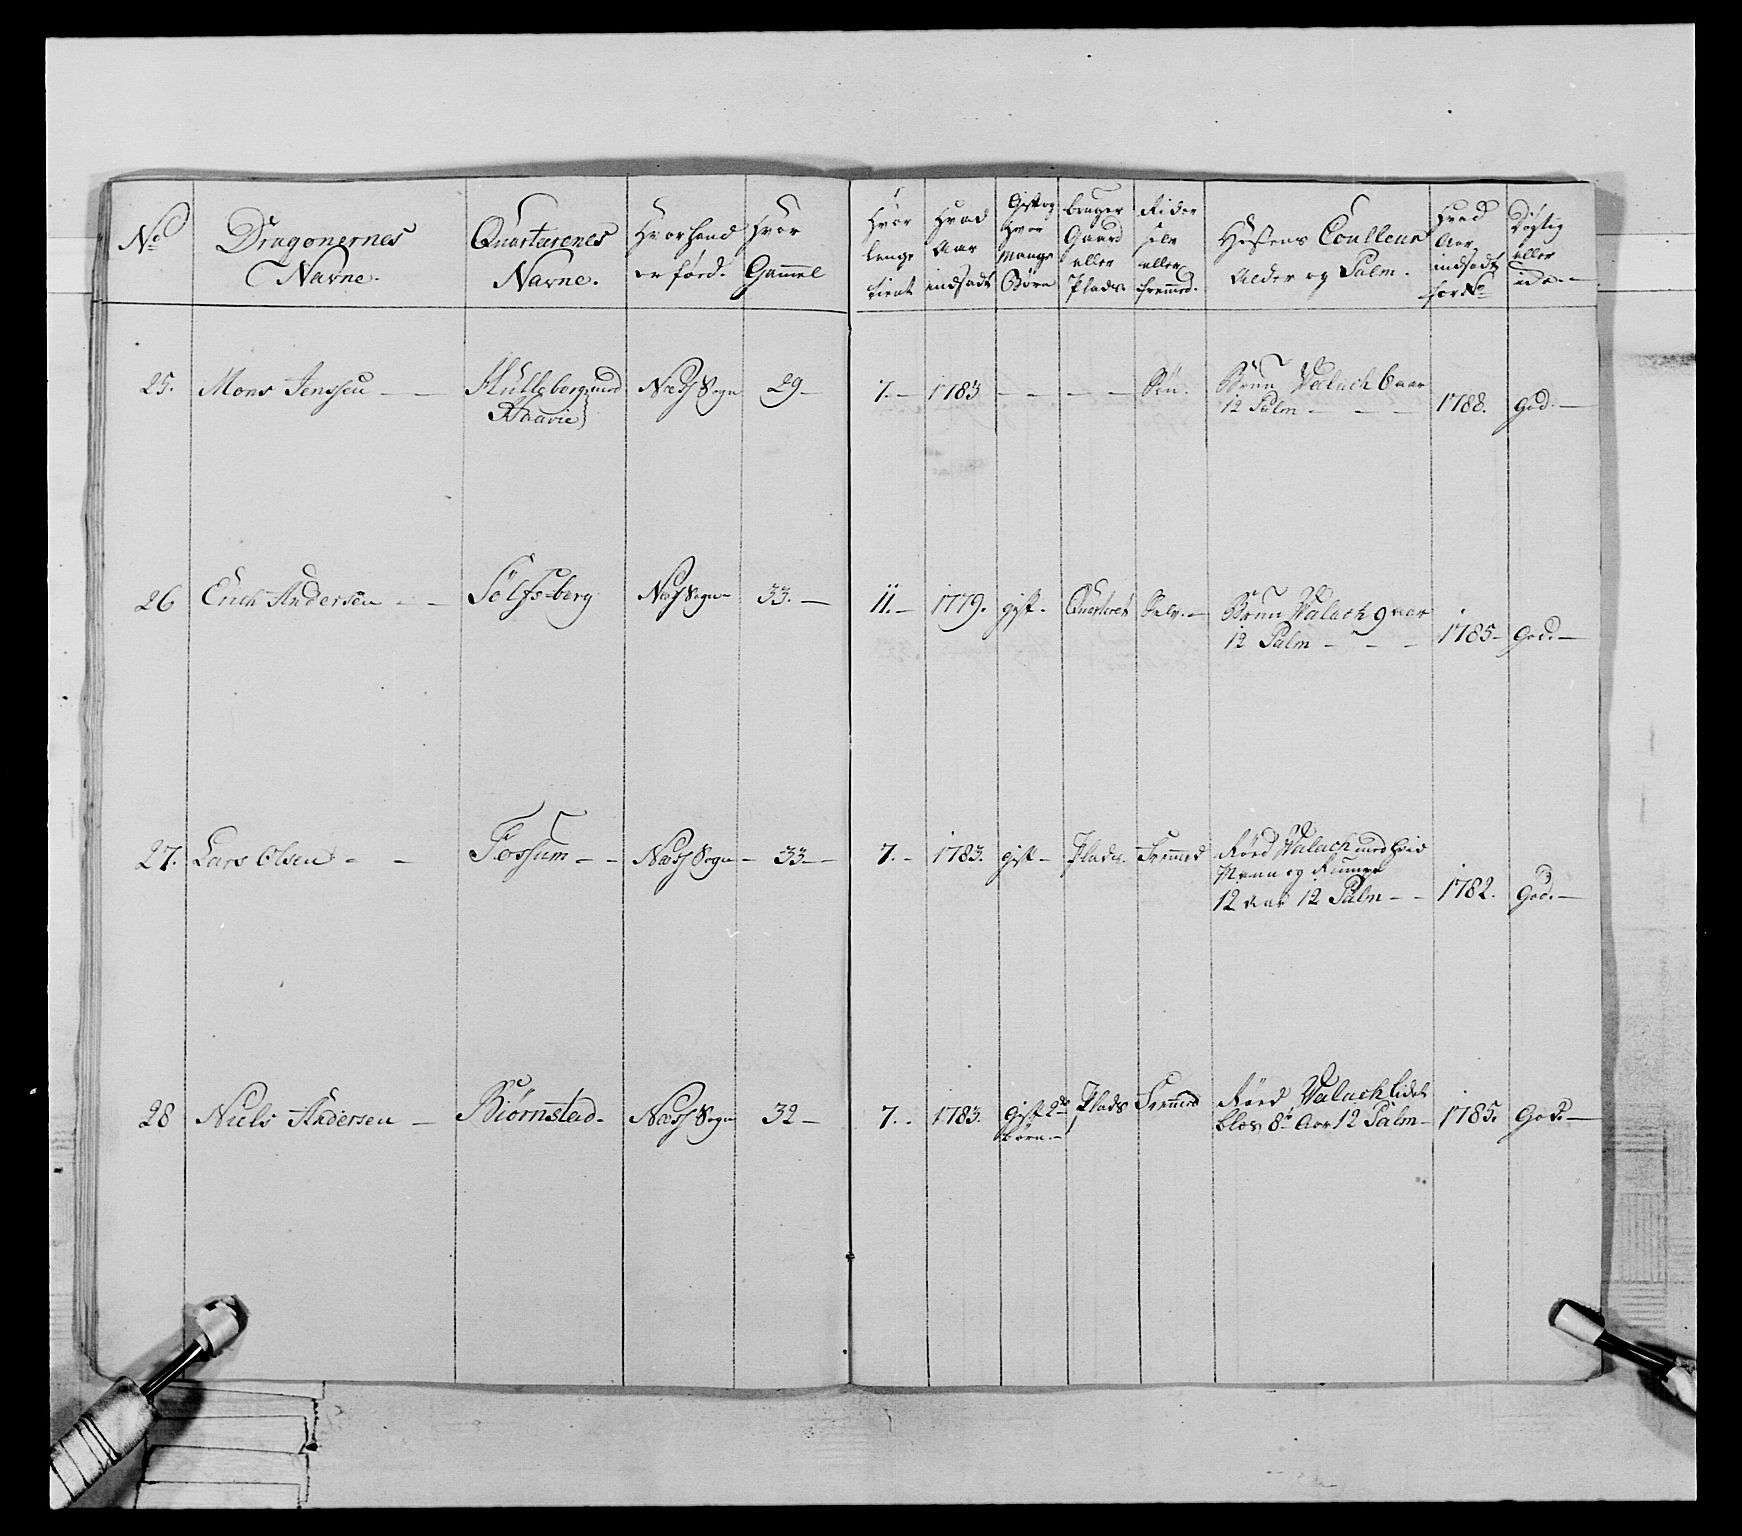 No
Dragonernes
Navne.
Quarterenes
Navne.
Hvor hand
er föed.
Hvor
Gammel
Hvor
lenge
tient
Hvad
Aar
indsadt
Gift og
Hvor
Mange
Börn
bruger
Gaard
eller
Plads
Rider
selv
eller
fremmed.
Hestens Coulleur
Alder og Palm.
Hvad
Aar
indsadt
for No
Dygtig
eller
25. Mons Jenssen — — Hullebergmed Næss Sogn 29 — 7. — 1783 — — — — Brun Vallach 6 aar
Haavie 12 Palm — — — 1788. God. —
26 Erich Andersen — — Sölfsberg Næss Sogn — 33. — 11. — 1779. gift — Quarteret Selv. — Brun Valach 9 aar
12 Palm — — — 1785 — God. —
27. Lars Olsen — — Fossum — — Næss Sogn — 33 — 7. — 1783. gift — Plads Fremmed Röed Valach med hvid
Maan og
12 aar 12 Palm — — 1782. God. —
28 Niels Andersen — Biörnstad — Næss Sogn 32 — 7. — 1783. Gift 2de Plads Fremmed Röed Valach lidet
börn — blis 8te Aar 12 Palm — 1785. God. —